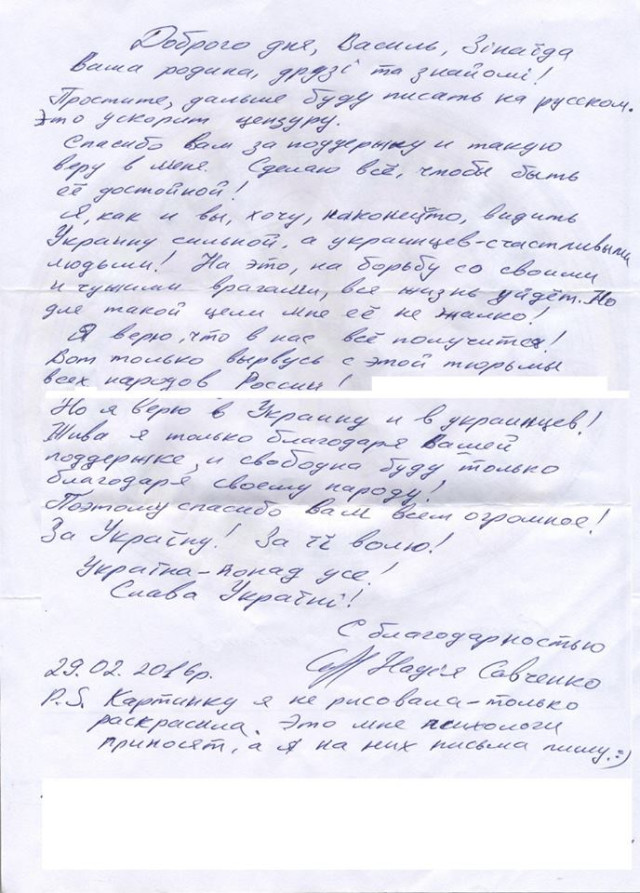 Доброго дня, Василь, Зінаїда
Ваша родина, друзі та знайомі!
Простите, дальше буду писать на русском.
Это ускорит цензуру.
Спасибо вам за поддержку и такую
веру в меня. Сделаю всё, чтобы быть
её достойной!
Я, как и вы, хочу, наконец-то, видить
Украину сильной, а украинцев-счастливыми
людьми! На это, на борьбу со своими
и чужими врагами, вся жизнь уйдёт. Но
для такой цели мне её не жалко!
Я верю, что в нас всё получится!
Вот только вырвусь с этой тюрьмы
всех народов России!
Но я верю в Украину и в украинцев!
Жива я только благодаря Вашей
поддержке, и свободна буду только
благодаря своему народу!
Поэтому спасибо вам всем огромное!
За Україну! За її волю!
Україна-понад усе!
Слава Україні!
С благодарностью
29.02.2016р. Надія Савченко
P.S. Картинку я не рисовала-только
раскрасила. Это мне психологи
приносят, а я на них письма пишу.:)